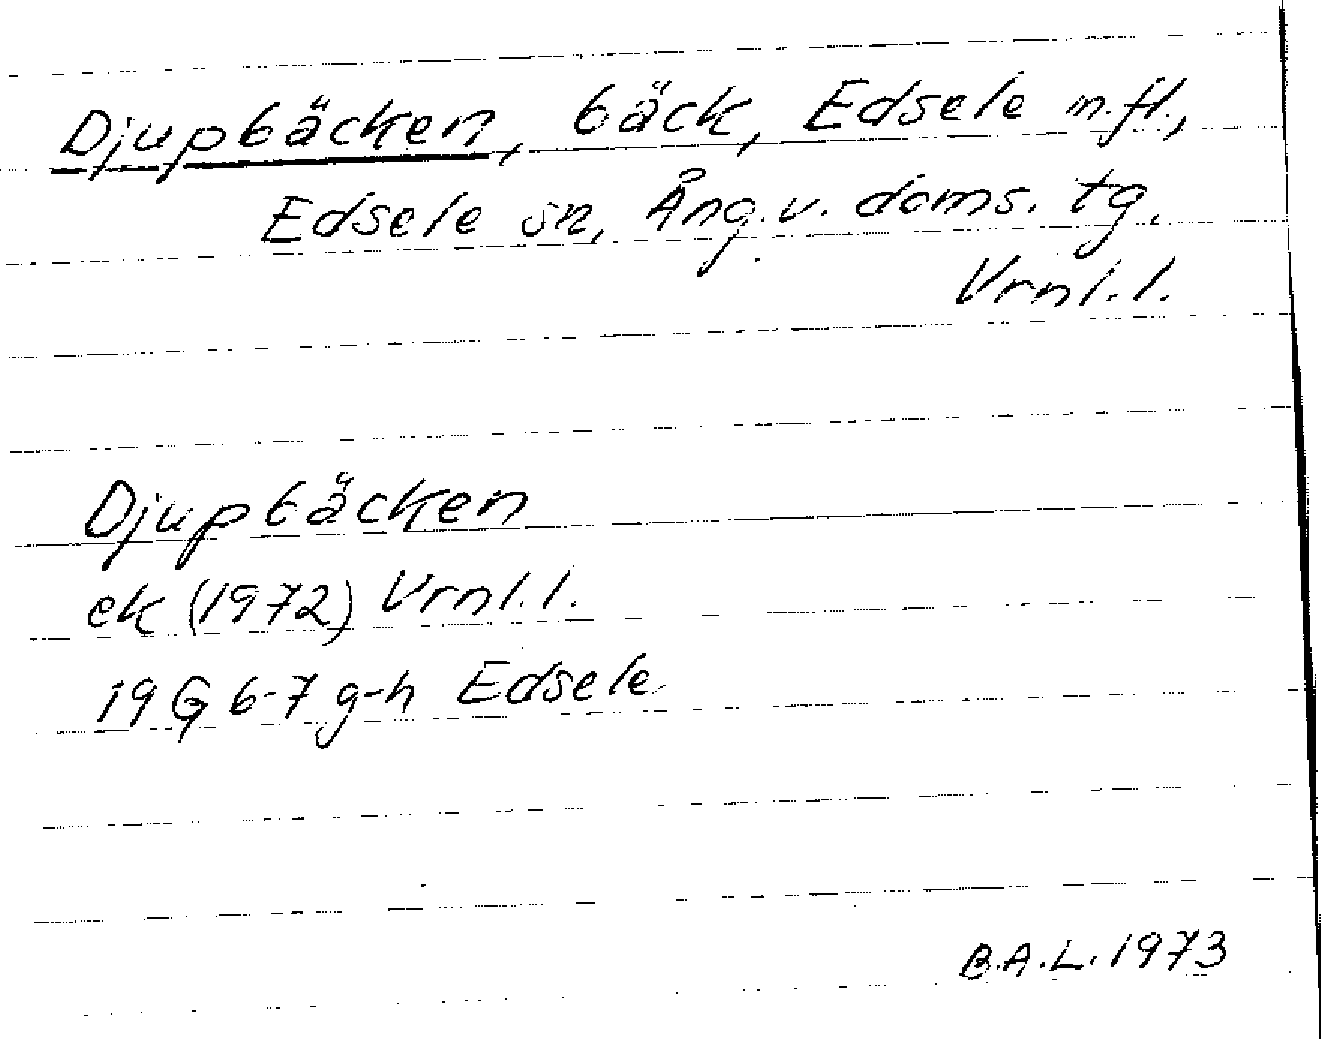 Djupbäcken, bäck, Edsele m.fl.,
Edsele sn, Ång.v. doms. tg.
Vrnl.l.
Djupbäcken
ek (1972) Vrnl.l.
19 G 6-7 g-h Edsele
B.A.L. 1973